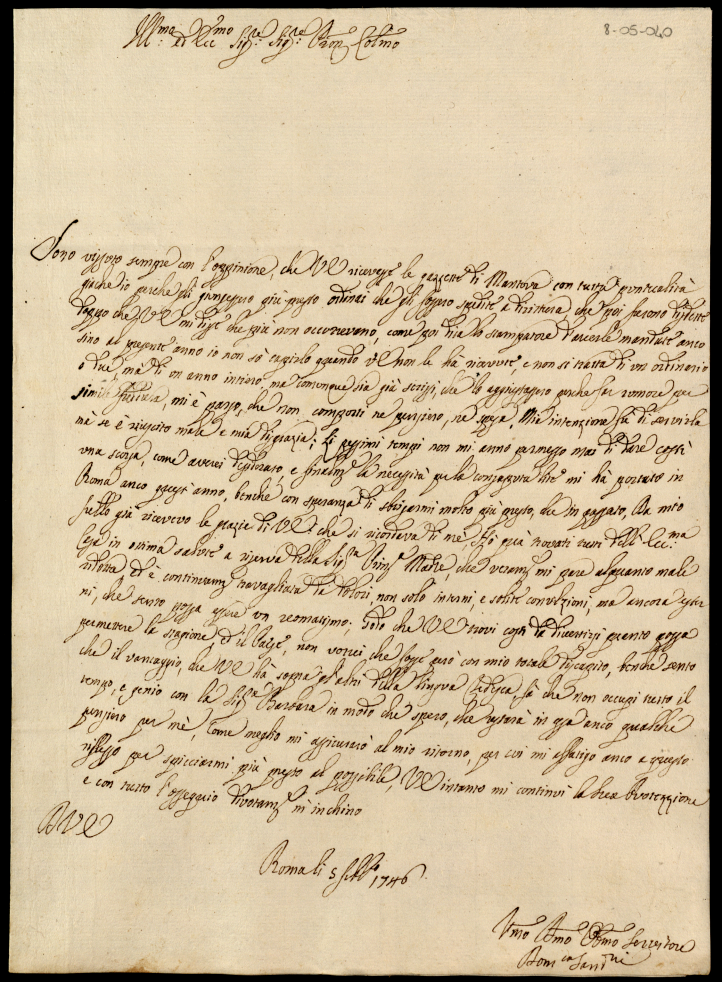 8-05-040
Ill:ma ed Ecc:mo Sig:re Sig:re Pron Colmo
Sono vissuto sempre con l'oppinione, che VE ricevesse le gazzette di Mantova con tutta puntualità
giache io perche gli giungessero più presto ordinai che gli fossero spedite a dirittura, che poi furono
doppo che VE mi disse che più non occorrevano, come poi dica lo stampatore d'avercele mandate anco
sino al presente anno io non sò capirlo quando VE non le hà ricevute, e non si tratta di un ordinario
ò due, mà di un anno intiero, ma comunque sia già scrissi, che lo aggiustassero perche far romore per
simili, mi è parso, che non comporti ne pensiero, ne spesa. Mia intenzione fù di servirla
mà se è riuscito male è mia disgrazia; Li pessimi tempi non mi anno permesso mai di dare costì
una scorsa, come averei desiderato, e finalm:e la necessità per la consaputa lite mi hà portato in
Roma anco quest'anno, benche con speranza di sbrigarmi molto più presto, che in passato, Da mio
fratello già ricevevo le grazie di VE che si ricordava di me, Hò quà trovati tutti dell'Ecc:ma
Casa in ottima salute a riserva della Sig:ra Prin:sa Madre, che veram:e mi pare alquanto male
ridotta ed è continuam:e travagliata da dolori non solo interni, e solite convulzioni, ma ancora ester
ni, che sento possa essere un reomatismo; Godo che VE trovi costì da divertirsi quanto possa
permettere la stagione, ed il Paese, non vorei che fosse però con mio totale discapito, benche sento
che il vantaggio, che VE hà sopra gli altri della lingua Tedesca, fà che non occupi tutto il
tempo, e genio con la Sig:ra Barbara in modo che spero, che restarà in essa anco qualche
pensiero per mè, come meglio mi assicurarò al mio ritorno, per cui mi affatigo anco a questo
riflesso per spicciarmi più presto al possibile, VE intanto mi continui la sua Protezzione
e con tutto l'ossequio divotam:e m'inchino
D VE
Roma li 5 Febb:o 1746.
Umo Dmo Obmo Servitore
Dom:co